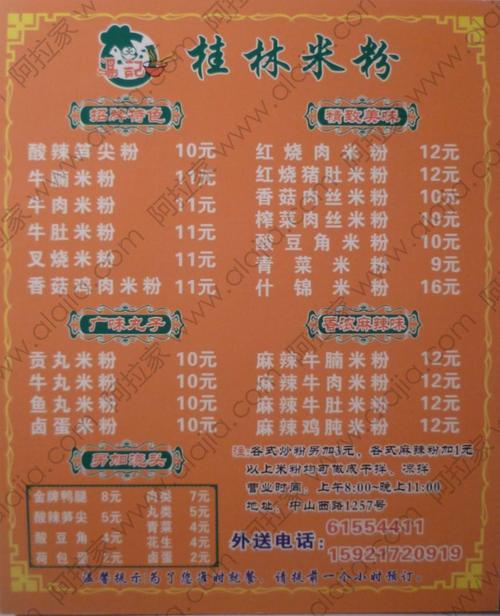 桂林米粉
招牌特色
酸辣笋尖粉 10元
牛腩米粉 11元
牛肉米粉 11元
牛肚米粉 11元
叉烧米粉 11元
香菇鸡肉米粉 11元
精致美味
红烧肉米粉 12元
红烧猪肚米粉 12元
香菇肉丝米粉 10元
榨菜肉丝米粉 10元
酸豆角米粉 10元
青菜米粉 9元
什锦米粉 16元
广味丸子
贡丸米粉 10元
牛丸米粉 10元
鱼丸米粉 10元
卤蛋米粉 10元
香浓麻辣味
麻辣牛腩米粉 12元
麻辣牛肉米粉 12元
麻辣牛肚米粉 12元
麻辣鸡肫米粉 12元
另加浇头
金牌鸭腿 8元 肉类 7元
酸辣笋尖 5元 丸类 5元
酸豆角 4元 青菜 4元
荷包蛋 2元 花生 4元
卤蛋 2元
注:各式炒粉另加3元、各式麻辣粉加1元
以上米粉均可做成干拌、凉拌
营业时间:上午8:00~晚上11:00
地址:中山西路1257号
外送电话:61554411
15921720919
温馨提示为了您准时就餐、请提前一个小时预订。
阿拉家 www.alajia.com